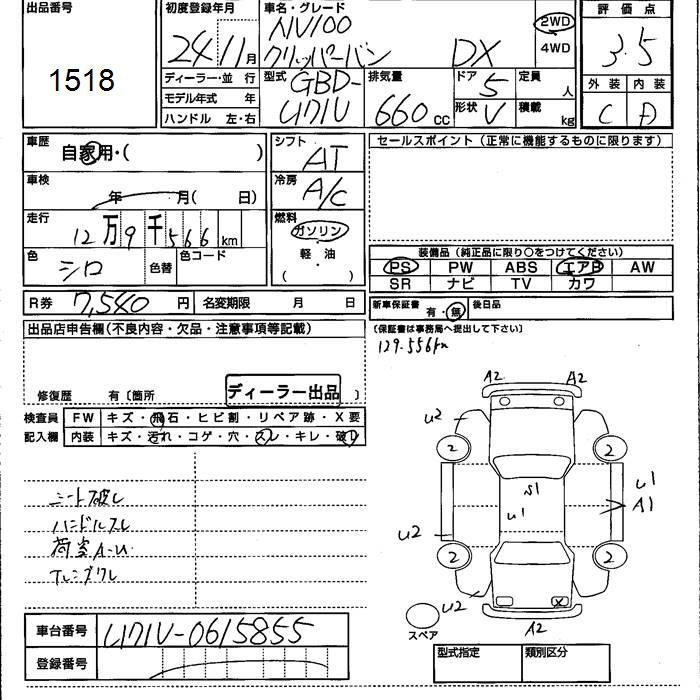 出品番号 1518
初度登録年月 24年11月
車名・グレード NV100 クリッパーバン DX
2WD
4WD
評価点 3.5
外装 C 内装 D
ディーラー・並行
モデル年式 年
ハンドル 左・右
型式 GBD-U71V
排気量 660 cc
ドア 5
形状 V
定員 人
積載 kg
車歴 自家用・( )
車検 年 月( 日)
走行 12万9千566km
色 シロ 色替 色コード
R券 7,540円 名変期限 月 日
シフト AT
冷房 A/C
燃料 ガソリン・軽油・( )
セールスポイント(正常に機能するものに限ります)
装備品(純正品に限り○をつけてください)
PS PW ABS エアB AW
SR ナビ TV カワ
新車保証書 有・無 後日品
(保証書は事務局へ提出して下さい)
129.556km
出品店申告欄(不良内容・欠品・注意事項等記載)
修復歴 有〔箇所 〕
ディーラー出品
検査員記入欄
FW キズ・飛石・ヒビ割・リペア跡・X要
内装 キズ・汚れ・コゲ・穴・スレ・キレ・破レ
シート破レ
ハンドルスレ
荷室A-U
A2 A2
U2
2 2
S1
U1
U1
A1
U2
2 2
U2
X
A2
スペア
車台番号 U71V-0615855
登録番号
型式指定 類別区分